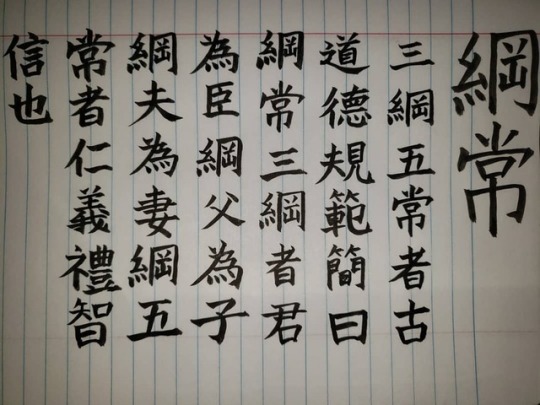 綱常
三綱五常者古
道德規範簡曰
綱常三綱者君
為臣綱父為子
綱夫為妻綱五
常者仁義禮智
信也